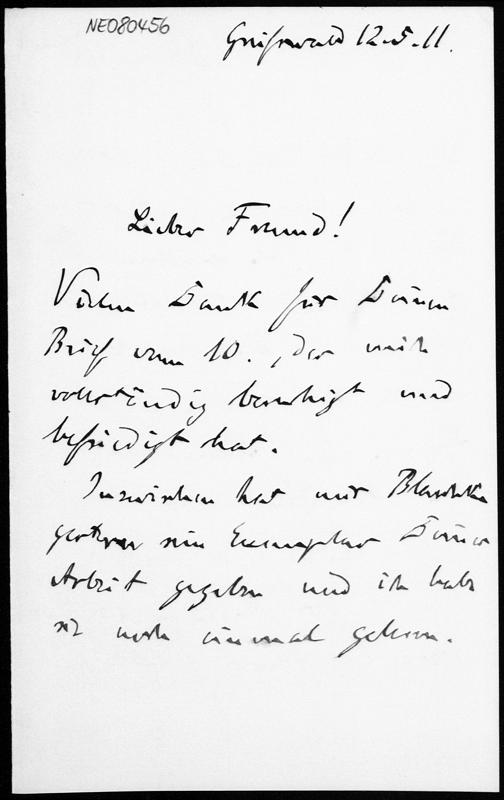 NE080456
Greifswald 12.5.11.
Lieber Freund!
Vielen Dank für Deinen
Brief vom 10., der mich
vollständig beruhigt und
befriedigt hat.
Inzwischen hat mir Blaschke
gestern ein Exemplar Deiner
Arbeit gegeben und ich habe
sie noch einmal gelesen.